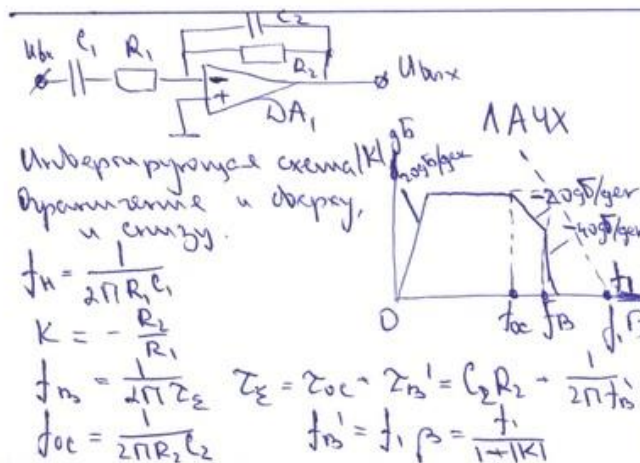 C₂
Uвх C₁ R₁ R₂ Uвых
- +
DA₁
Инвертирующая схема
Ограничение и сверху,
и снизу.
|K| дБ
ЛАЧХ
20дБ/дек
-20дБ/дек
-40дБ/дек
0 fос fв f₁ β f₁
fн = 1/(2πR₁C₁)
K = - R₂/R₁
fв = 1/(2πτΣ) τΣ = τос + τв' = C₂R₂ + 1/(2πfв')
fос = 1/(2πR₂C₂) fв' = f₁ β = f₁/(1+|K|)